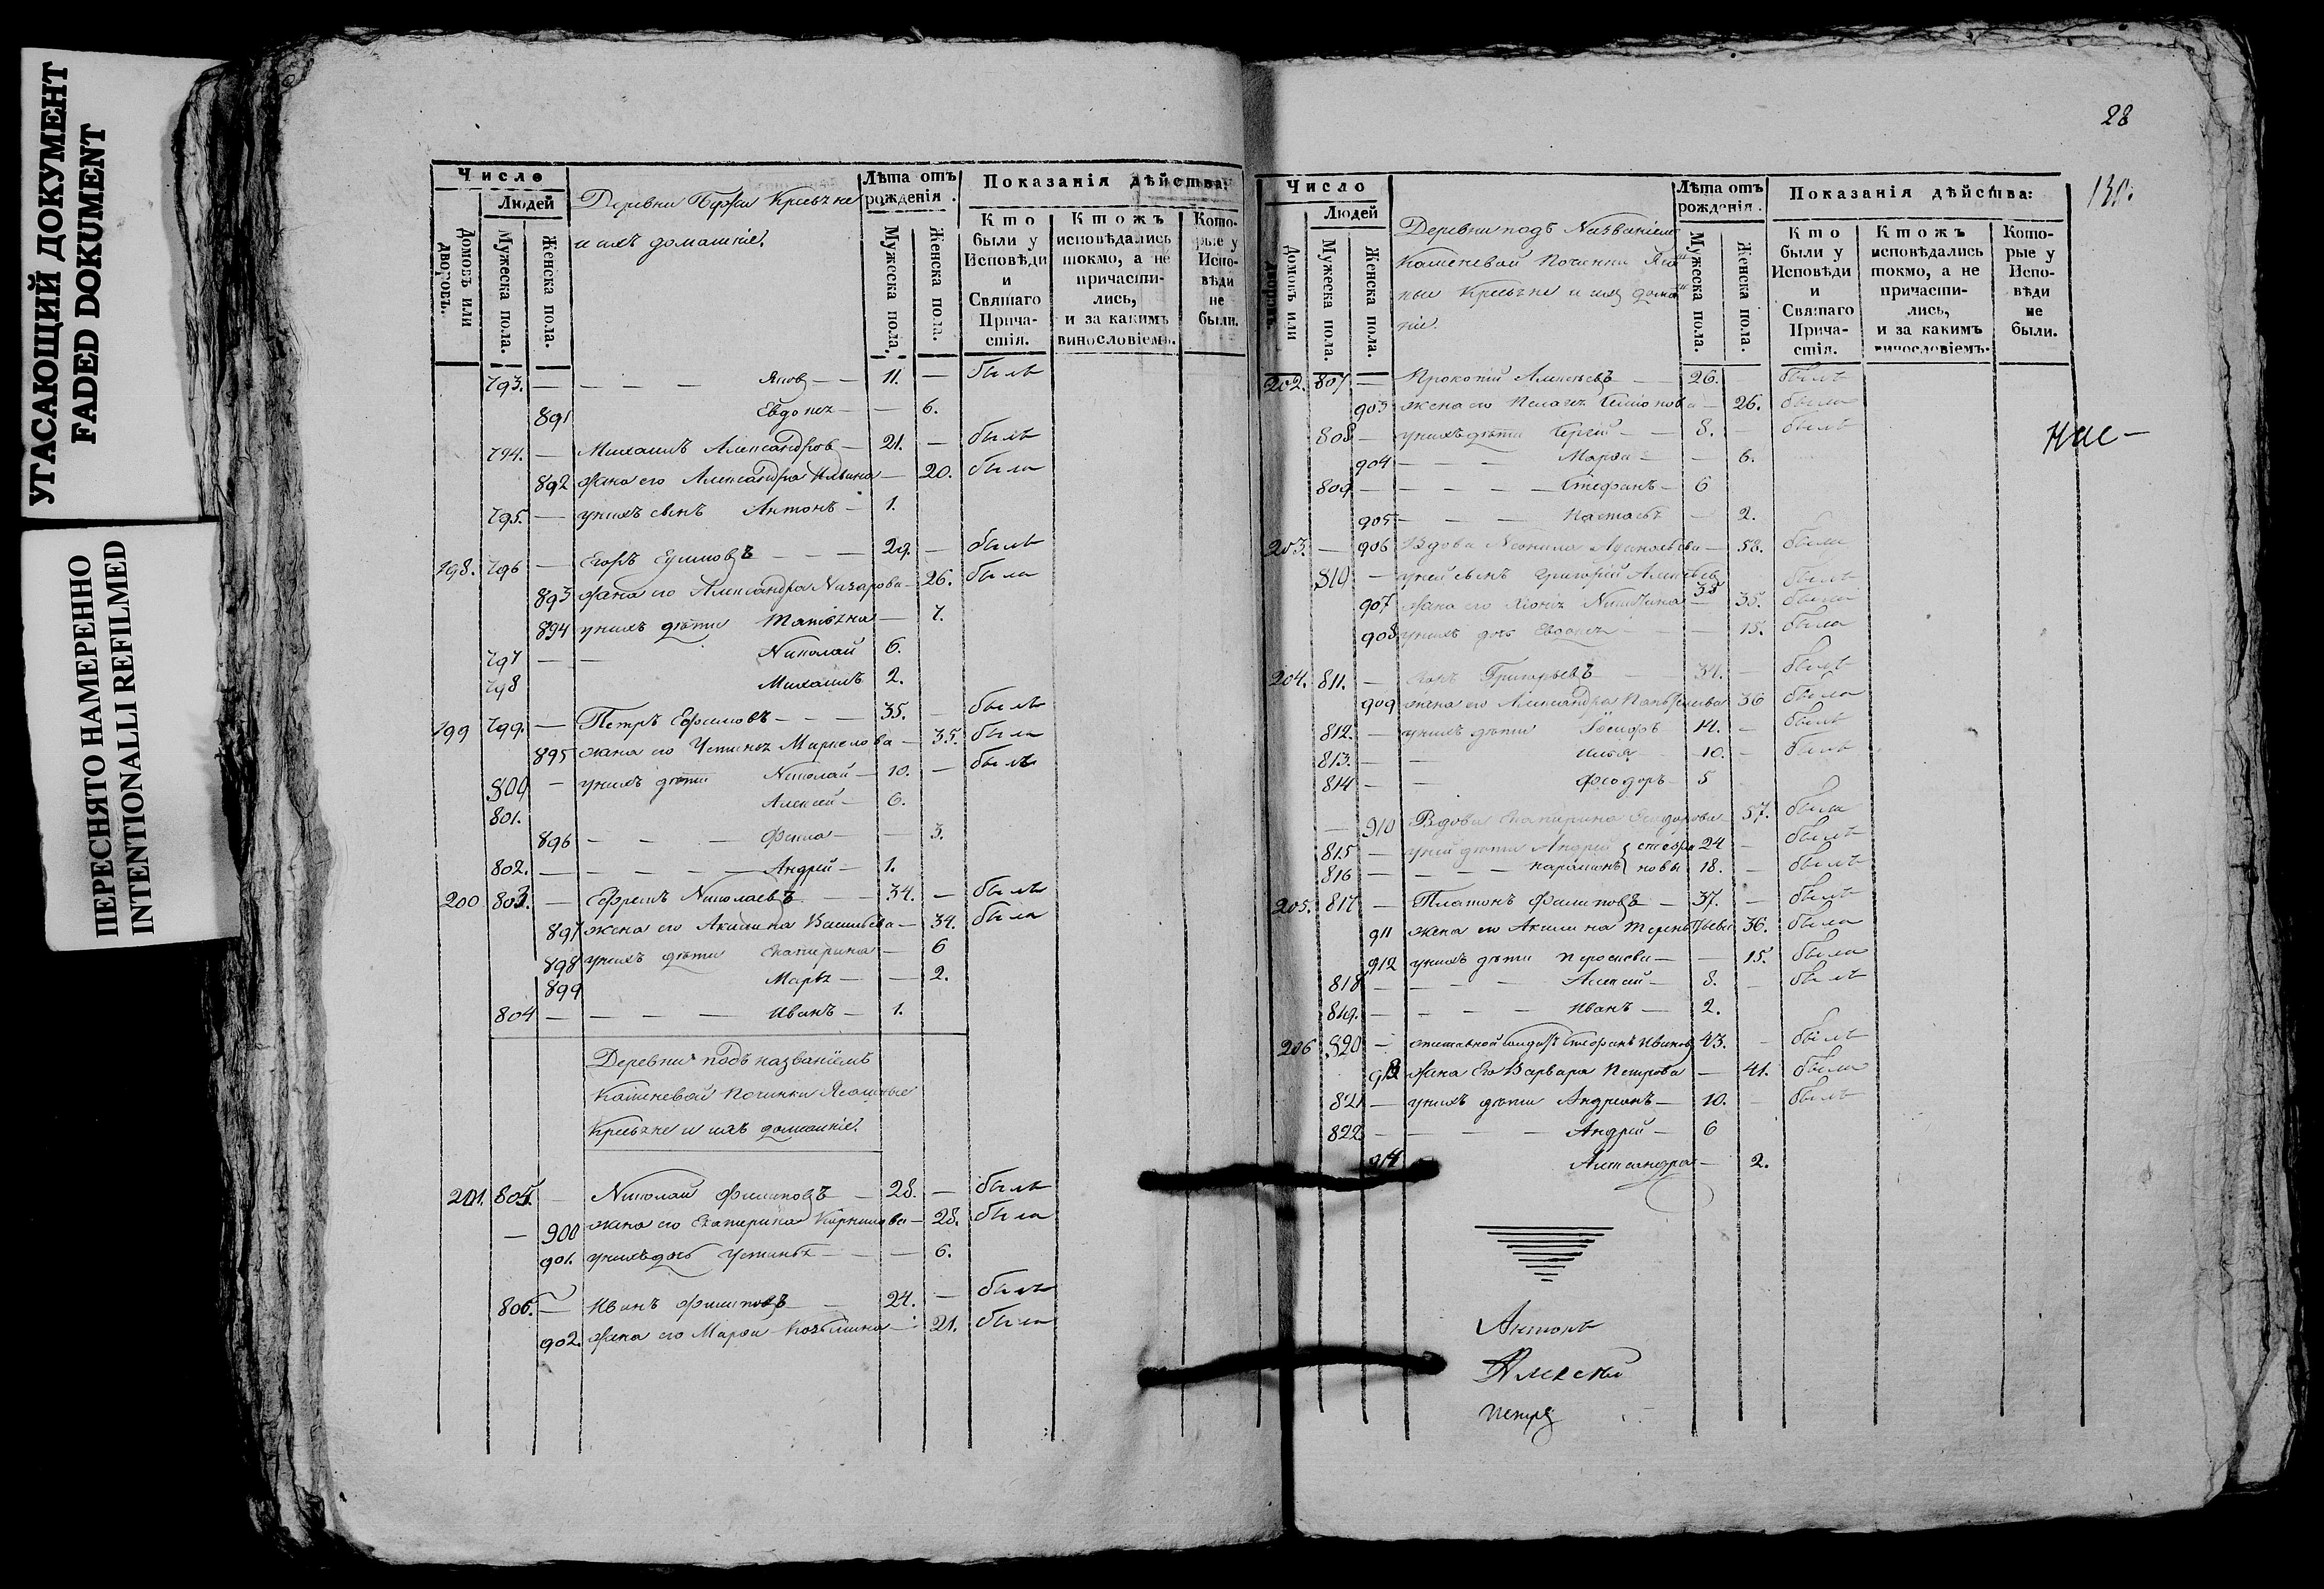 УГАСАЮЩИЙ ДОКУМЕНТ
FADED DOKUMENT
ПЕРЕСНЯТО НАМЕРЕННО
INTENTIONALLI REFILMED
Число
Людей
Домовъ или дворовъ.
Мужеска пола.
Женска пола.
Деревни
и ихъ домашніе.
Лѣта отъ рожденія.
Мужеска пола.
Женска пола.
Показанія дѣйства:
Кто были у Исповѣди и Святаго Прича-стія.
Ктожъ исповѣдались токмо, а не причасти-лись, и за какимъ винословіемъ.
Кото-рые у Испо-вѣди не были.
793. — — — — Яковъ — 11. — былъ
891 Евдокия — — 6.
794. — Михаилъ Александровъ — 21. — былъ
892 жена его Александра Ильина — 20. была
795. — у нихъ сынъ Антонъ — 1.
198. 796 — Егоръ Ефимовъ — — — 29. — былъ
893 жена его Александра Назарова — 26. была
894 у нихъ дѣти Татіяна — 7.
797 — — Николай 6.
798 Михаилъ 2.
199 799. — Петръ Ефимовъ — — — 35. — былъ
895 жена его Устинья Маркелова — 35. была
800 — у нихъ дѣти Николай — 10. — былъ
801. Алексей — 6.
896 — — — Фекла — — 3.
802. — — — — — Андрей — 1.
200 803. — Ефремъ Николаевъ — 34. — былъ
897 жена его Акилина Васильева — 34. была
898 у нихъ дѣти Екатерина — 6
899 Марья — — 2.
804 — — — — Иванъ — 1.
Деревни подъ названіемъ
Каменевой Починки Ясашные
Крестьяне и ихъ домашніе.
201. 805. — Николай Филиповъ — 28. — былъ
— 900 жена его Екатерина Корнилова — 28. была
901. у нихъ дочь Устинья — — 6.
806. — Иванъ Филиповъ — 24. — былъ
902. жена его Марфа Козьмина — 21. была
28
130.
Число
Людей
Домовъ или дворовъ.
Мужеска пола.
Женска пола.
Деревни подъ Названіемъ
Каменевой Починки Яса
ные Крестьяне и ихъ дома
ніе.
Лѣта отъ рожденія.
Мужеска пола.
Женска пола.
Показанія дѣйства:
Кто были у Исповѣди и Святаго Прича-стія.
Ктожъ исповѣдались токмо, а не причасти-лись, и за какимъ винословіемъ.
Кото-рые у Испо-вѣди не были.
202. 807 — Прокопій Алексѣевъ — 26. — былъ
903 жена его Пелагея Семіонова — 26. была
808 — у нихъ дѣти Сергій — 8. — былъ
904 — — — Марфа — — 6.
809 — — — — — Стефанъ — 6
905 — — — Настасья — 2.
203. — 906 Вдова Неонила — 58. была
810 — у ней сынъ Григорій Алексѣевъ 35 былъ
907 жена его Ксенія Никитина — 35. была
908 у нихъ дочь Евдокия — — 15. была
204. 811. — Григорьевъ — 34. — былъ
909 жена его Александра 36 была
812. — у нихъ дѣти 14. — былъ
813. — — Илья — 10. — былъ
814 — — Феодоръ — 5
— 910 Вдова Екатерина Феодорова 57. была
815 — у ней дѣти Андрей 24 — былъ
816 — — — — новы 18. — былъ
205. 817 — Платонъ Филиповъ — 37. — былъ
911 жена его Акилина Терентьева 36. была
912 у нихъ дѣти — — 15. была
818 — — — — Алексей — 8. — былъ
819. — — — — Иванъ — 2.
206 820 — отставной Солдатъ Стефанъ Ивановъ 43. — былъ
913 жена Его Варвара Петрова — 41. была
821 — у нихъ дѣти Андреянъ — 10. — былъ
822 — — — — Андрей — 6
914 Александра — 2.
Антонъ
Алексей
Петръ